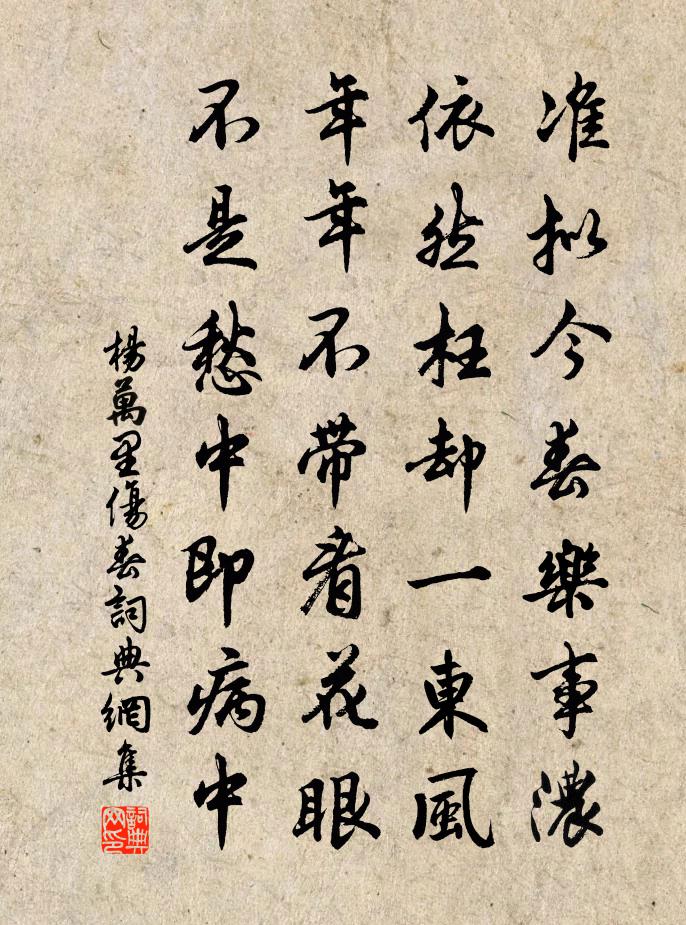 准拟今春樂事濃
依然枉却一東風
年年不带看花眼
不是愁中即病中
楊萬里傷春詞典網集
詞典网印